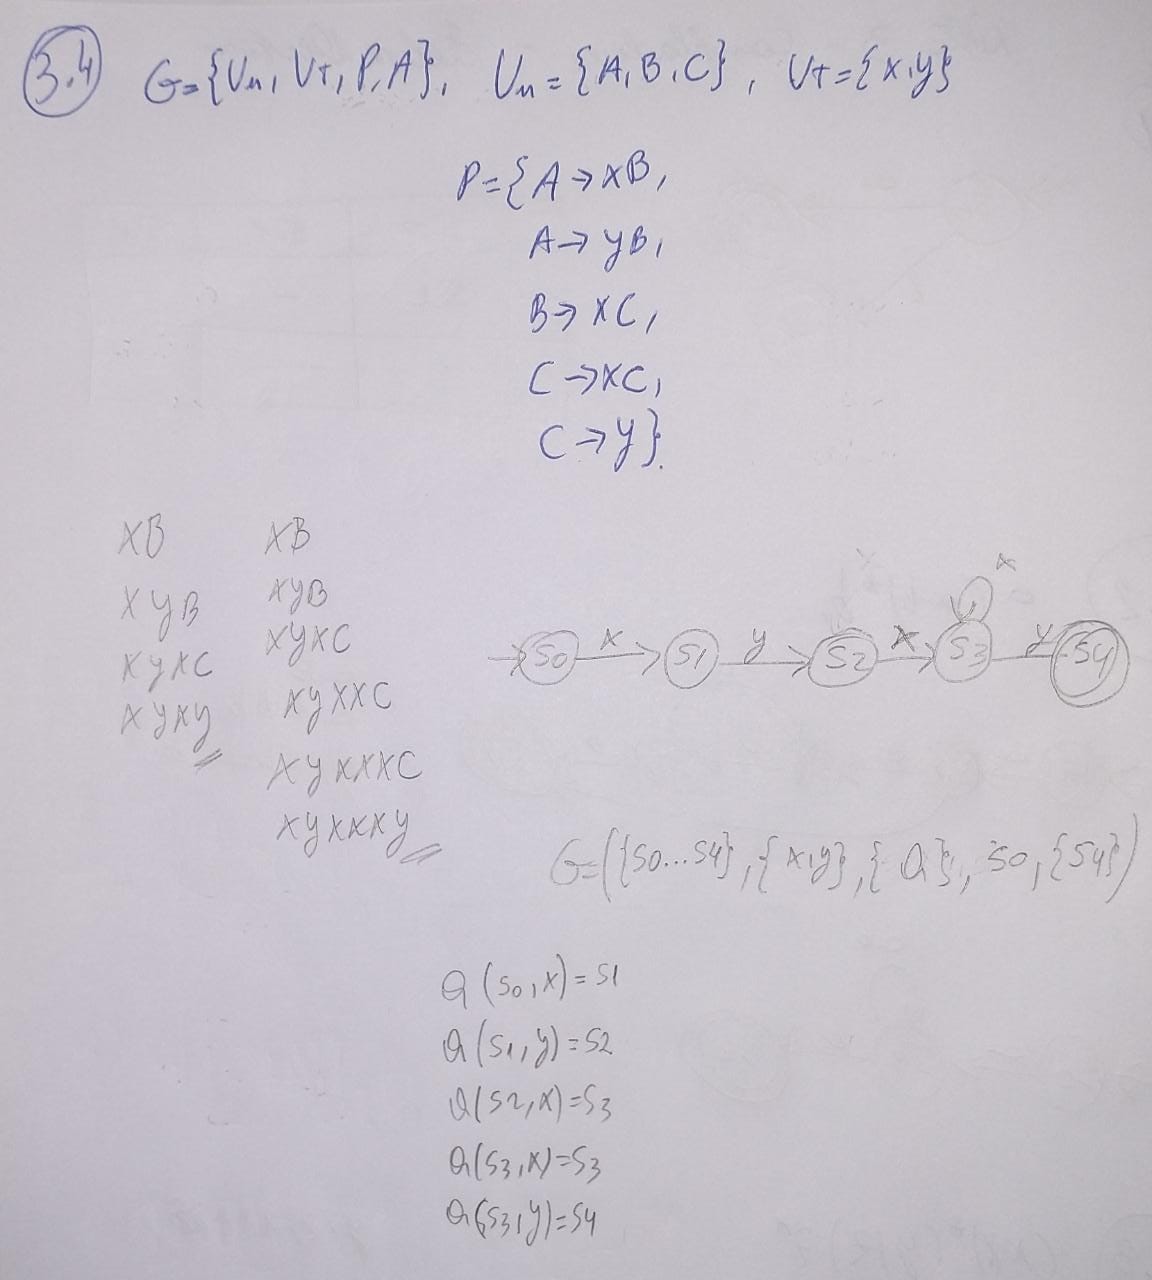 3.4 G={Vn, VT, P, A}, Vn={A, B, C}, VT={x,y}
P={A→xB,
A→yB,
B→xC,
C→xC,
C→y}.
xB
xyB
xyxC
xyxy
xB
xyB
xyxC
xyxxC
xyxxxC
xyxxxy
x
S0 x S1 y S2 x S3 y S4
G=({S0...S4},{x,y},{Q},S0,{S4})
Q(S0,x)=S1
Q(S1,y)=S2
Q(S2,x)=S3
Q(S3,x)=S3
Q(S3,y)=S4